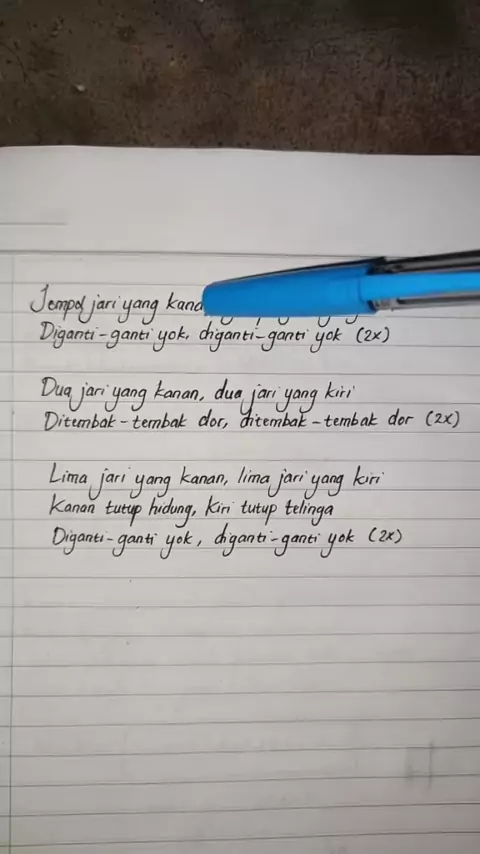 Jempol jari yang
Diganti-ganti yok, diganti-ganti yok (2x)
Dua jari yang kanan, dua jari yang kiri
Ditembak-tembak dor, ditembak-tembak dor (2x)
Lima jari yang kanan, lima jari yang kiri
Kanan tutup hidung, kiri tutup telinga
Diganti-ganti yok, diganti-ganti yok (2x)